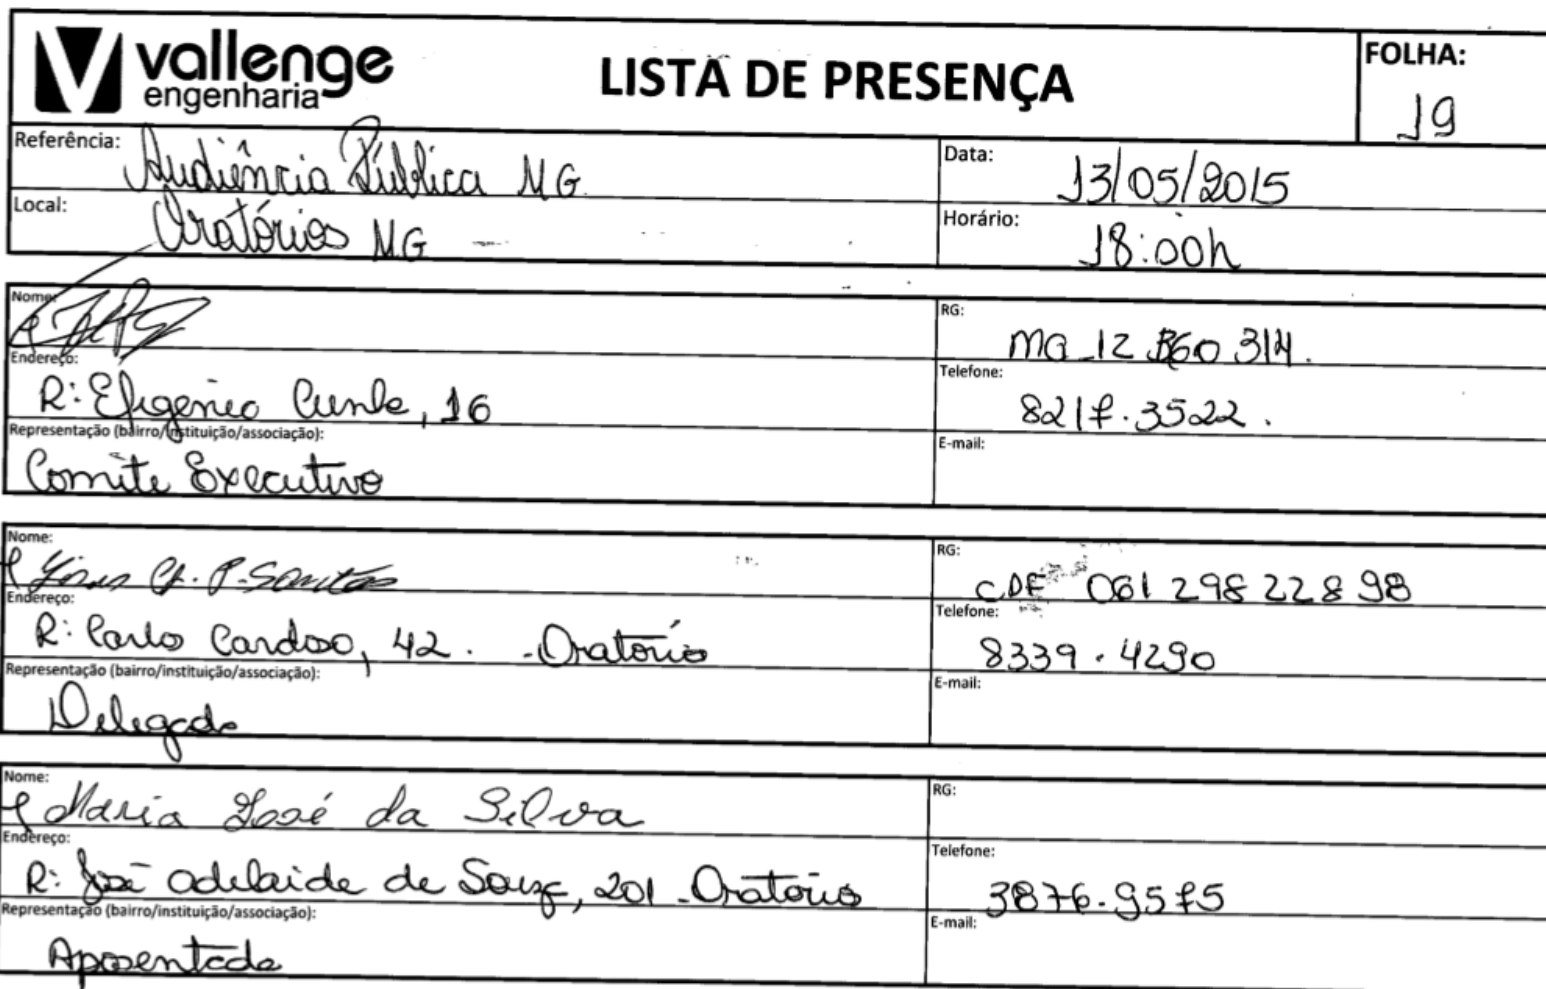 vallenge
engenharia
LISTA DE PRESENÇA
FOLHA:
19
Referência: Audiência Pública MG
Data: 13/05/2015
Local: Oratórios MG
Horário: 18:00h
Nome:
RG: MG 12 860 314.
Endereço: R: Efigenio Cunha, 16
Telefone: 8217.3522.
Representação (bairro/instituição/associação): Comite Executivo
E-mail:
Nome: P. Santos
RG: CPF 061 298 228 98
Endereço: R: Carlo Cardoso, 42. - Oratorio
Telefone: 8339.4290
Representação (bairro/instituição/associação): Delegado
E-mail:
Nome: Maria José da Silva
RG:
Endereço: R: José adelaide de Souza, 201 - Oratorio
Telefone: 3876.9575
Representação (bairro/instituição/associação): Aposentada
E-mail: